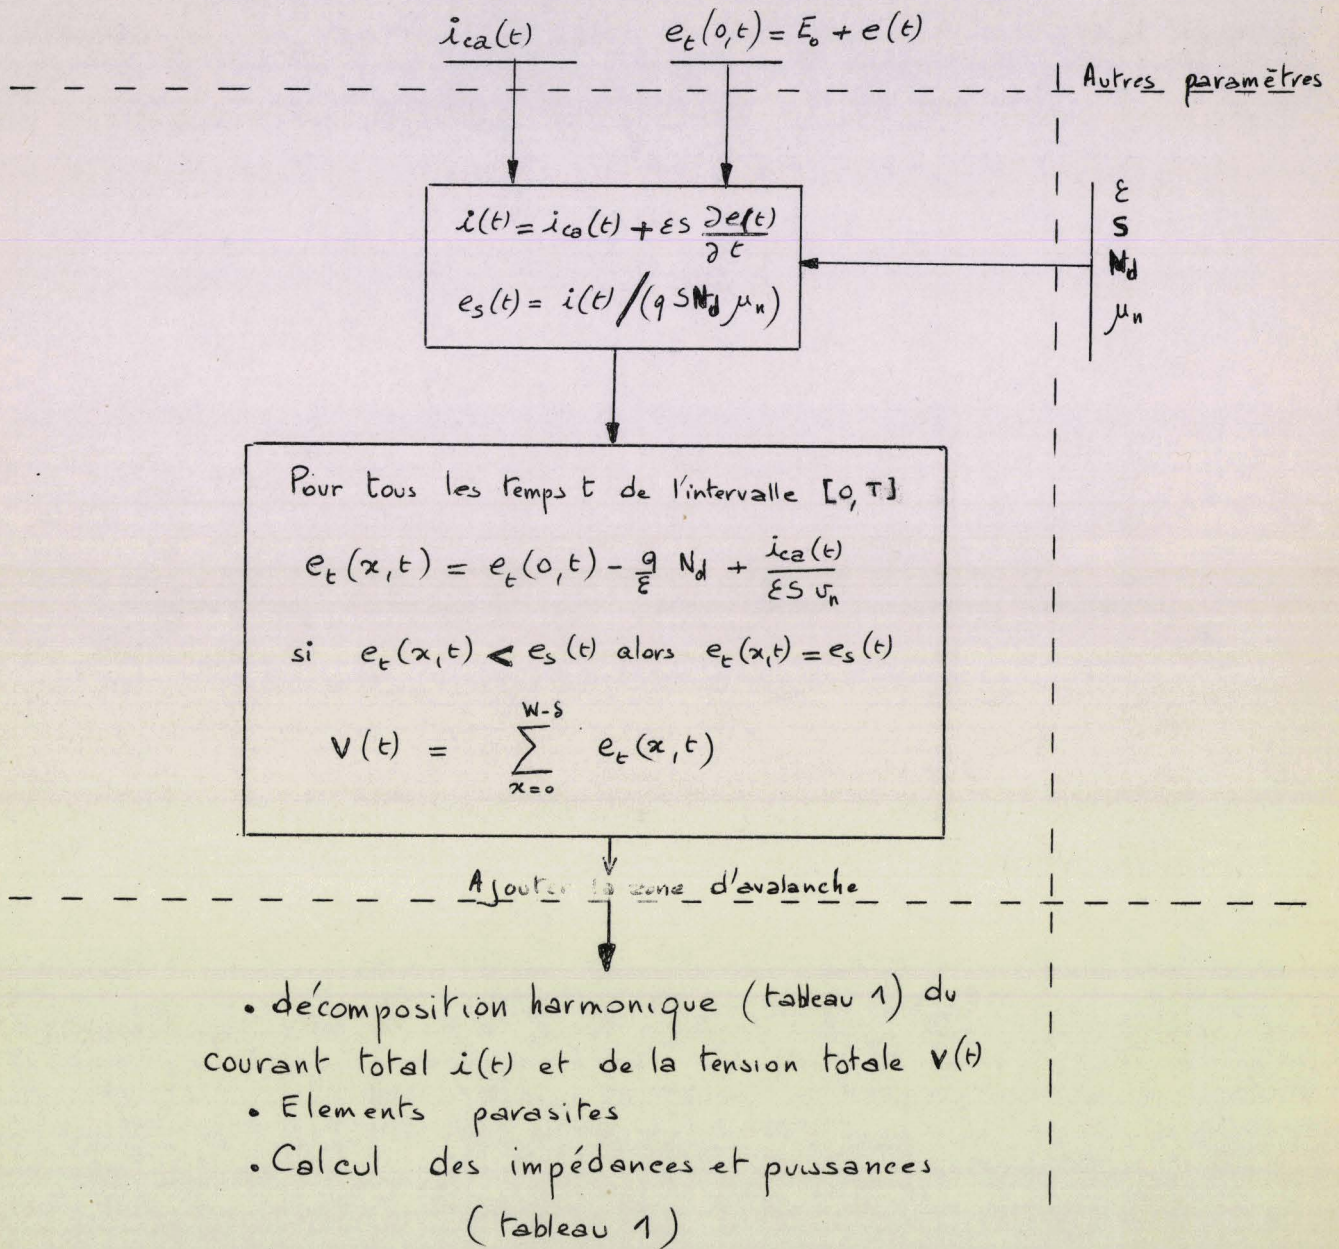 i_ca(t)    e_t(0,t) = E_0 + e(t)
Autres paramètres
i(t) = i_ca(t) + εS ∂e(t)/∂t
e_s(t) = i(t) / (q S N_d μ_n)
ε
S
N_d
μ_n
Pour tous les temps t de l'intervalle [0, T]
e_t(x,t) = e_t(0,t) - q/ε N_d + i_ca(t)/(εS v_n)
si e_t(x,t) < e_s(t) alors e_t(x,t) = e_s(t)
V(t) = ∑_{x=0}^{W-δ} e_t(x,t)
Ajouter la zone d'avalanche
• décomposition harmonique (tableau 1) du
courant total i(t) et de la tension totale V(t)
• Elements parasites
• Calcul des impédances et puissances
(tableau 1)